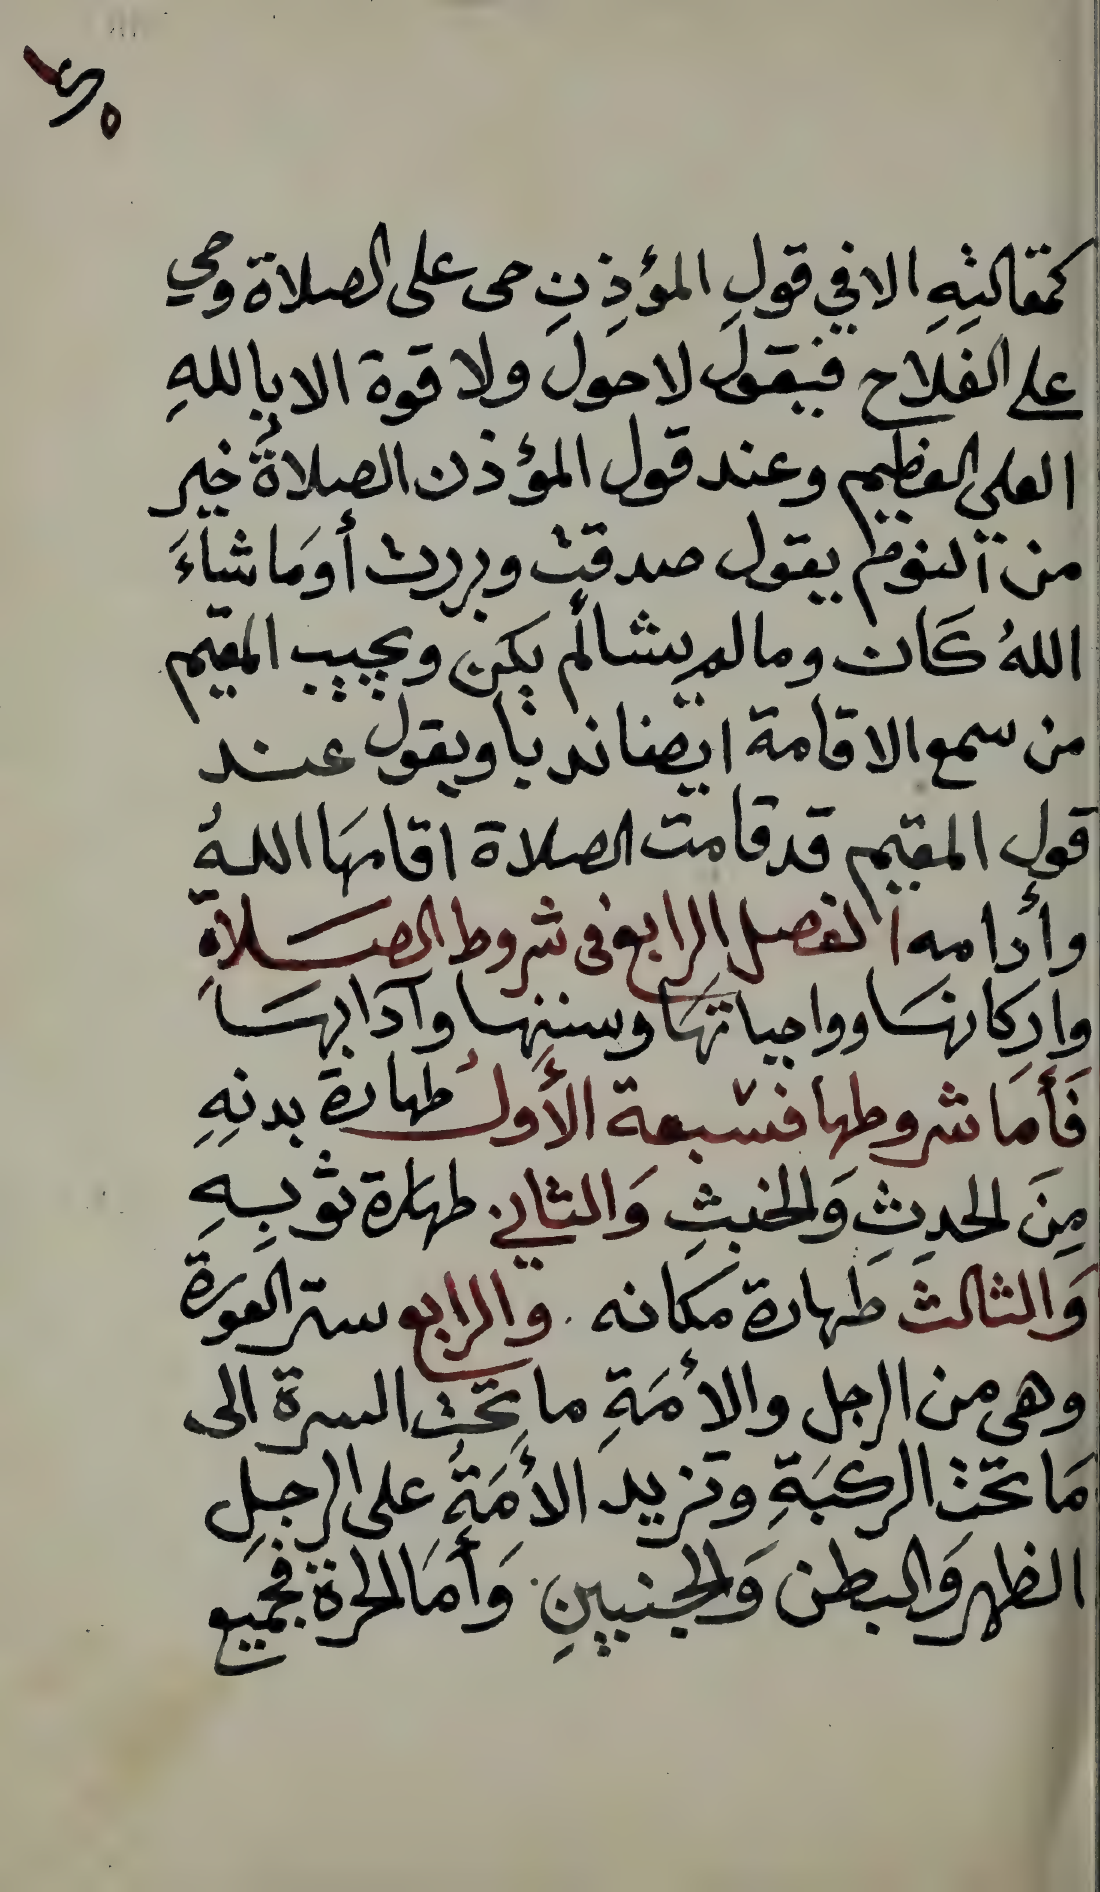 كمقالته الا في قول المؤذن حى على الصلاة وحي
على الفلاح فيقول لا حول ولا قوة الا بالله
العلى العظيم وعند قول المؤذن الصلاة خير
من النوم يقول صدقت وبررت أو ما شاءَ
اللهُ كَان وما لم يشألم يكن ويجيب المقيم
من سمع الاقامة ايضا ندبا ويقول عند
قول المقيم قد قامت الصلاة اقامهَا اللهُ
وأدامه الفصل الرابع فى شروط الصلاةِ
واركانهَا وواجباتهَا وسننها وآدابهَا
فَأمَا شروطها فسبعة الأولُ طهارة بدنِهِ
مِنَ الحدثِ وَالخبثِ وَالثاني طهارة ثوبِهِ
وَالثالث طهارة مكانه . والرابع ستر العورَة
وهى من الرجل والأمَةِ ما تحت السرة الى
مَا تحت الركبَةِ وتزيد الأمَةُ على الرجلِ
الظهر وَالبطن وَالجنبينِ . وَأمَا الحرة فجميع